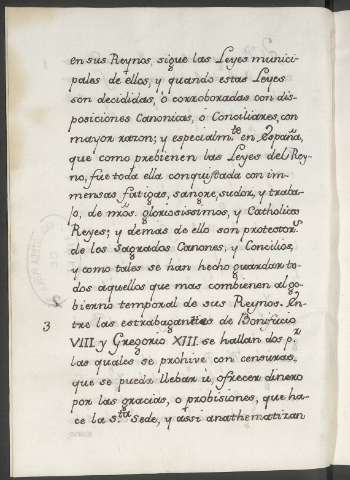 en sus Reynos, sigue las Leyes munici-
pales de ellos, y quando estas Leyes
son decididas, ò corroboradas con dis-
posiciones Canonicas, o Conciliares, con
mayor razon; y especialm.te en España,
que como prebienen las Leyes del Rey-
no, fue toda ella conquistada con im-
mensas fatigas, sangre, sudor, y traba-
jo, de nros. gloriosissimos, y Catholicos
Reyes; y demas de ello son protector.s
de los Sagrados Canones, y Concilios,
y como tales se han hecho guardar to-
dos aquellos que mas combienen al go-
bierno temporal de sus Reynos. En-
3 tre las estrabagantes de Bonifacio
VIII. y Gregorio XIII. se hallan dos p.r
las quales se prohive con censuras,
que se pueda llebar ù, ofrecer dinero
por las gracias, o probisiones, que ha-
ce la S.ta Sede, y assi anathematizan